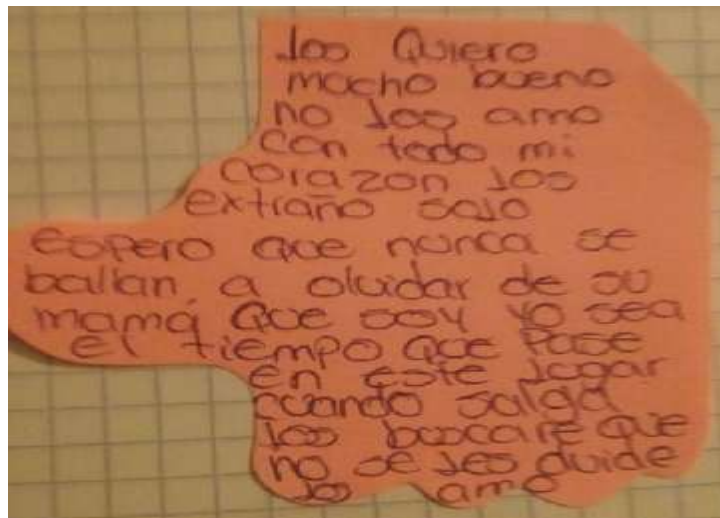 los Quiero
mucho bueno
no los amo
con todo mi
corazon los
extraño solo
espero que nunca se
ballan a olvidar de su
mamá que soy yo sea
el tiempo que pase
en este lugar
cuando salga
los buscare que
no se les olvide
los amo